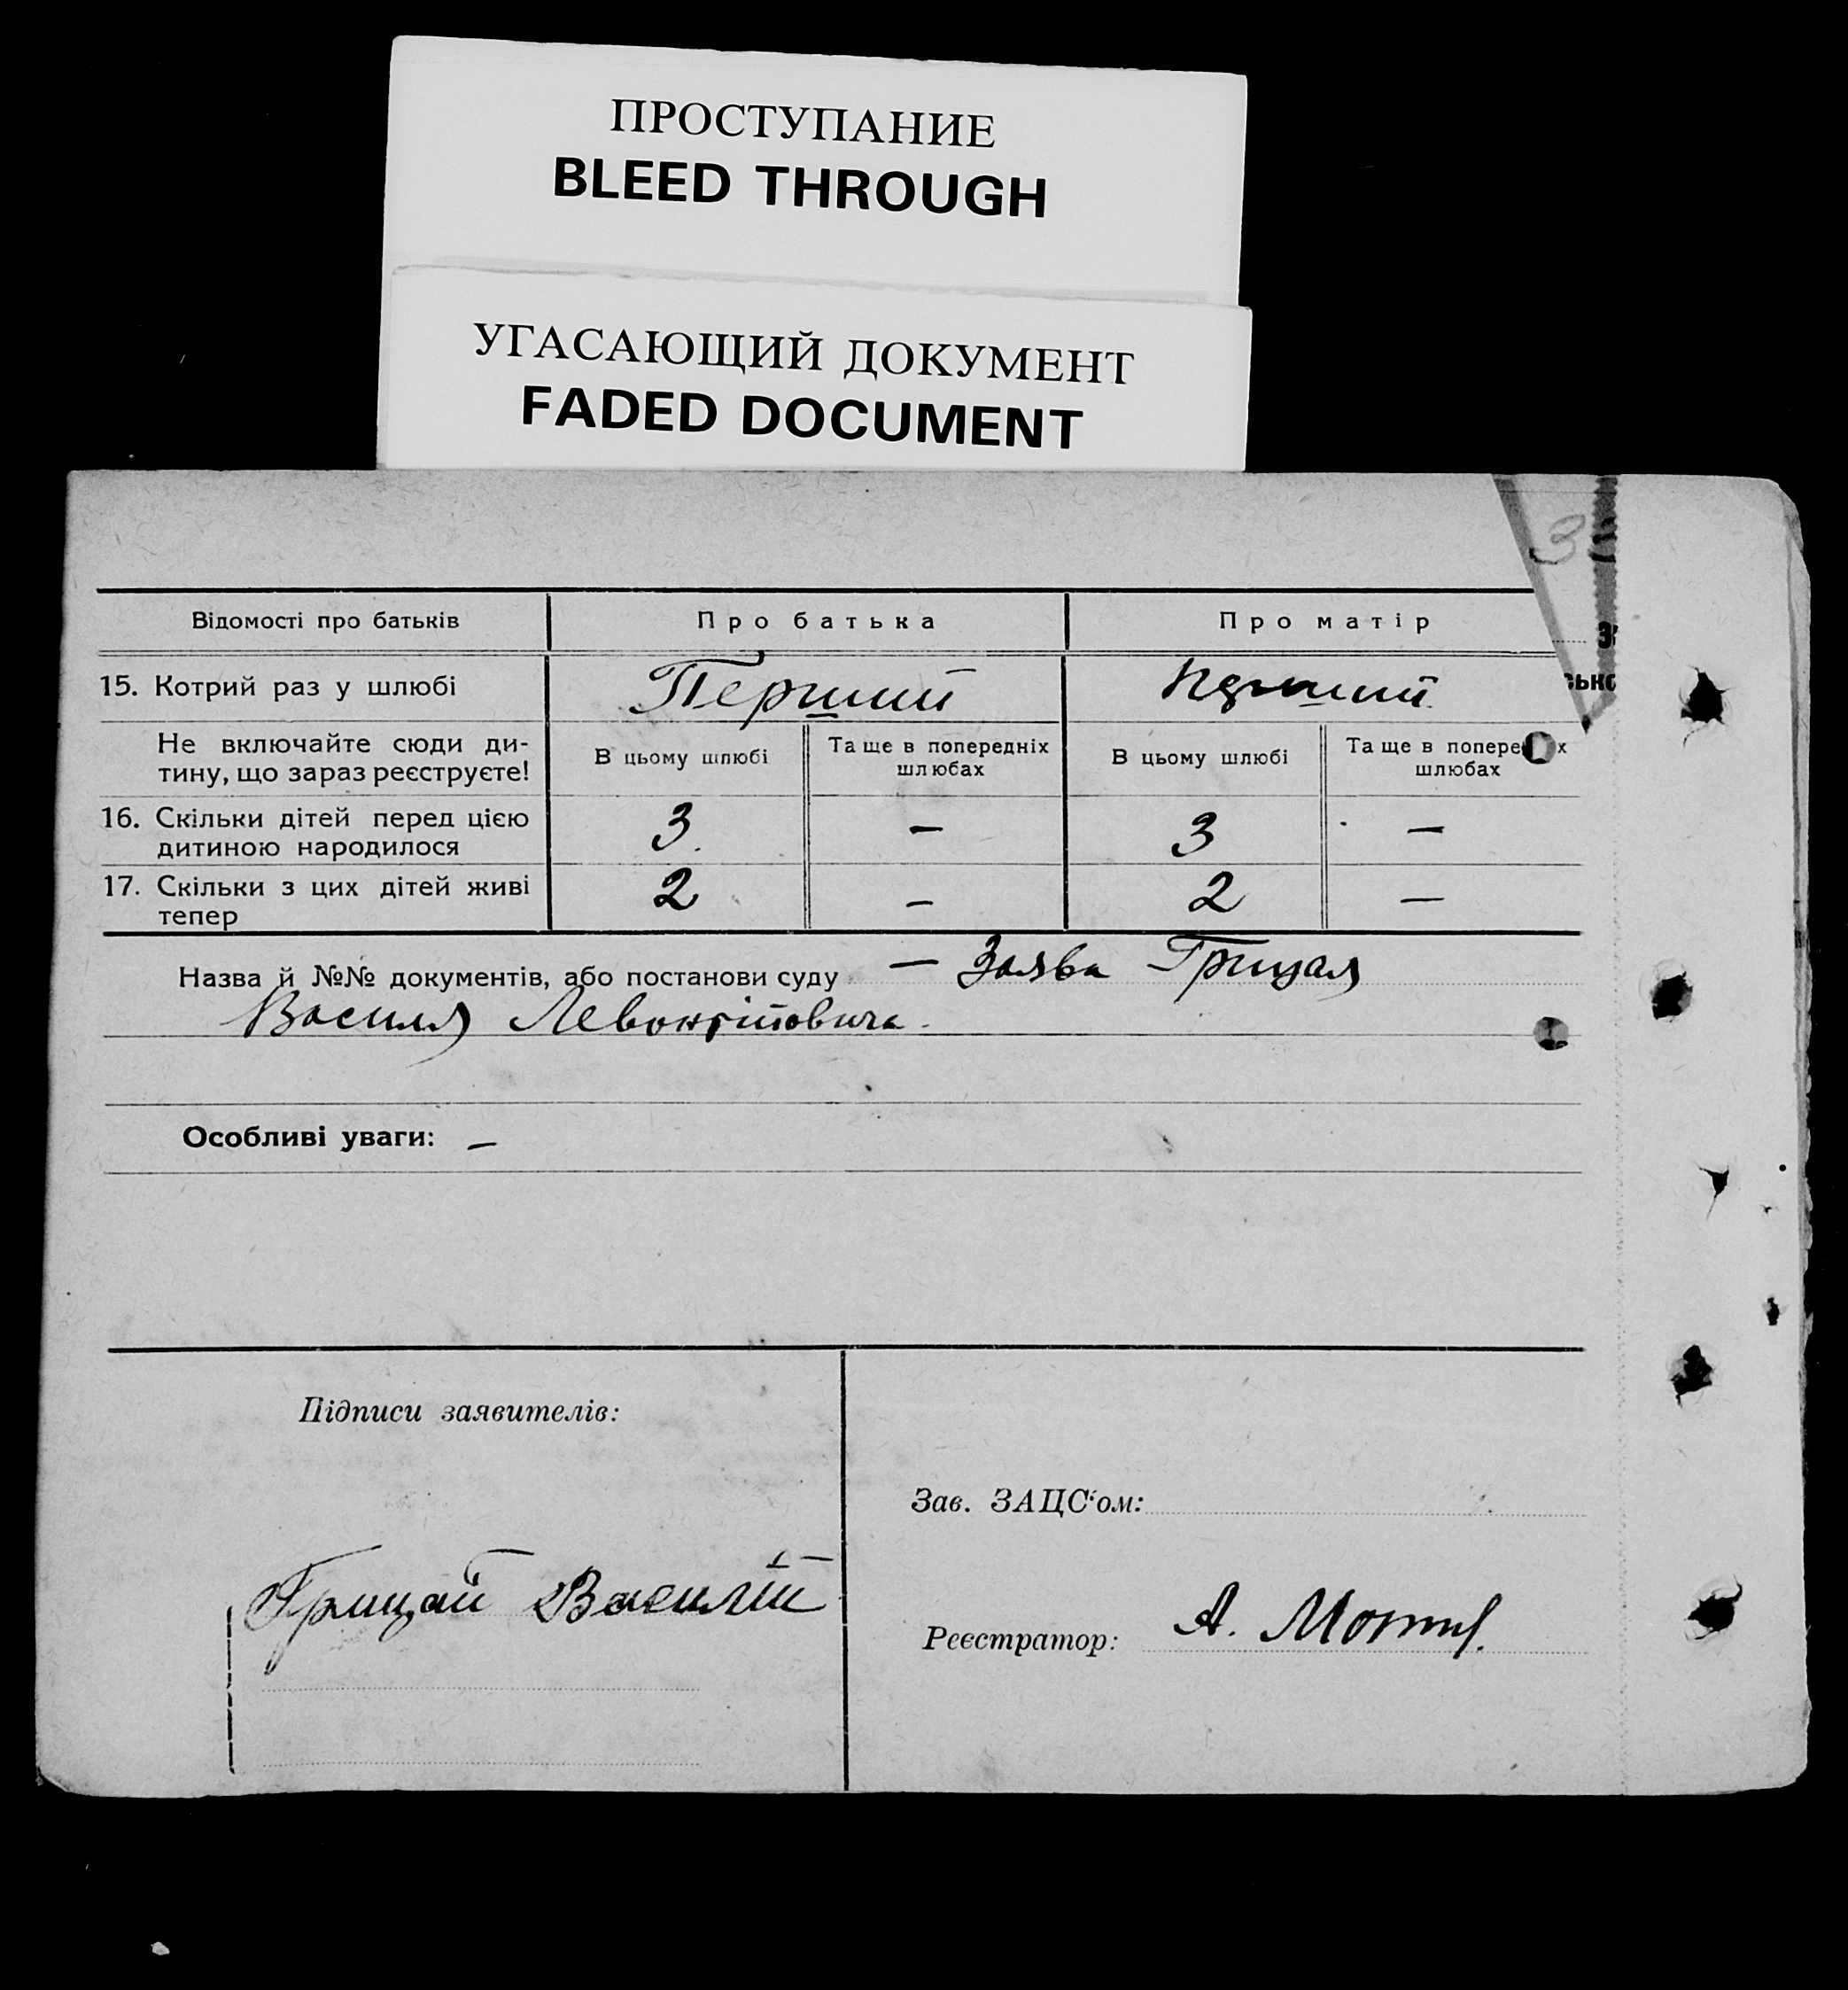 ПРОСТУПАНИЕ
BLEED THROUGH
УГАСАЮЩИЙ ДОКУМЕНТ
FADED DOCUMENT
3
Відомості про батьків Про батька Про матір
15. Котрий раз у шлюбі Перший Перший
Не включайте сюди ди-
тину, що зараз реєструєте!
В цьому шлюбі
Та ще в попередніх
шлюбах
В цьому шлюбі
Та ще в попере х
шлюбах
16. Скільки дітей перед цією
дитиною народилося
3 — 3 —
17. Скільки з цих дітей живі
тепер
2 — 2 —
Назва й №№ документів, або постанови суду — Заява Грицая
Василя Левонтійовича.
Особливі уваги: —
Підписи заявителів:
Грицай Василій
Зав. ЗАЦС'ом:
Реєстратор: А.